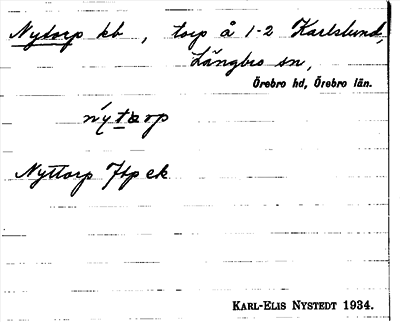 Nytorp kb, torp å 1-2 Karlslund,
Längbro sn,
Örebro hd, Örebro län.
nýtårp
Nyttorp Jfp ek
KARL-ELIS NYSTEDT 1934.